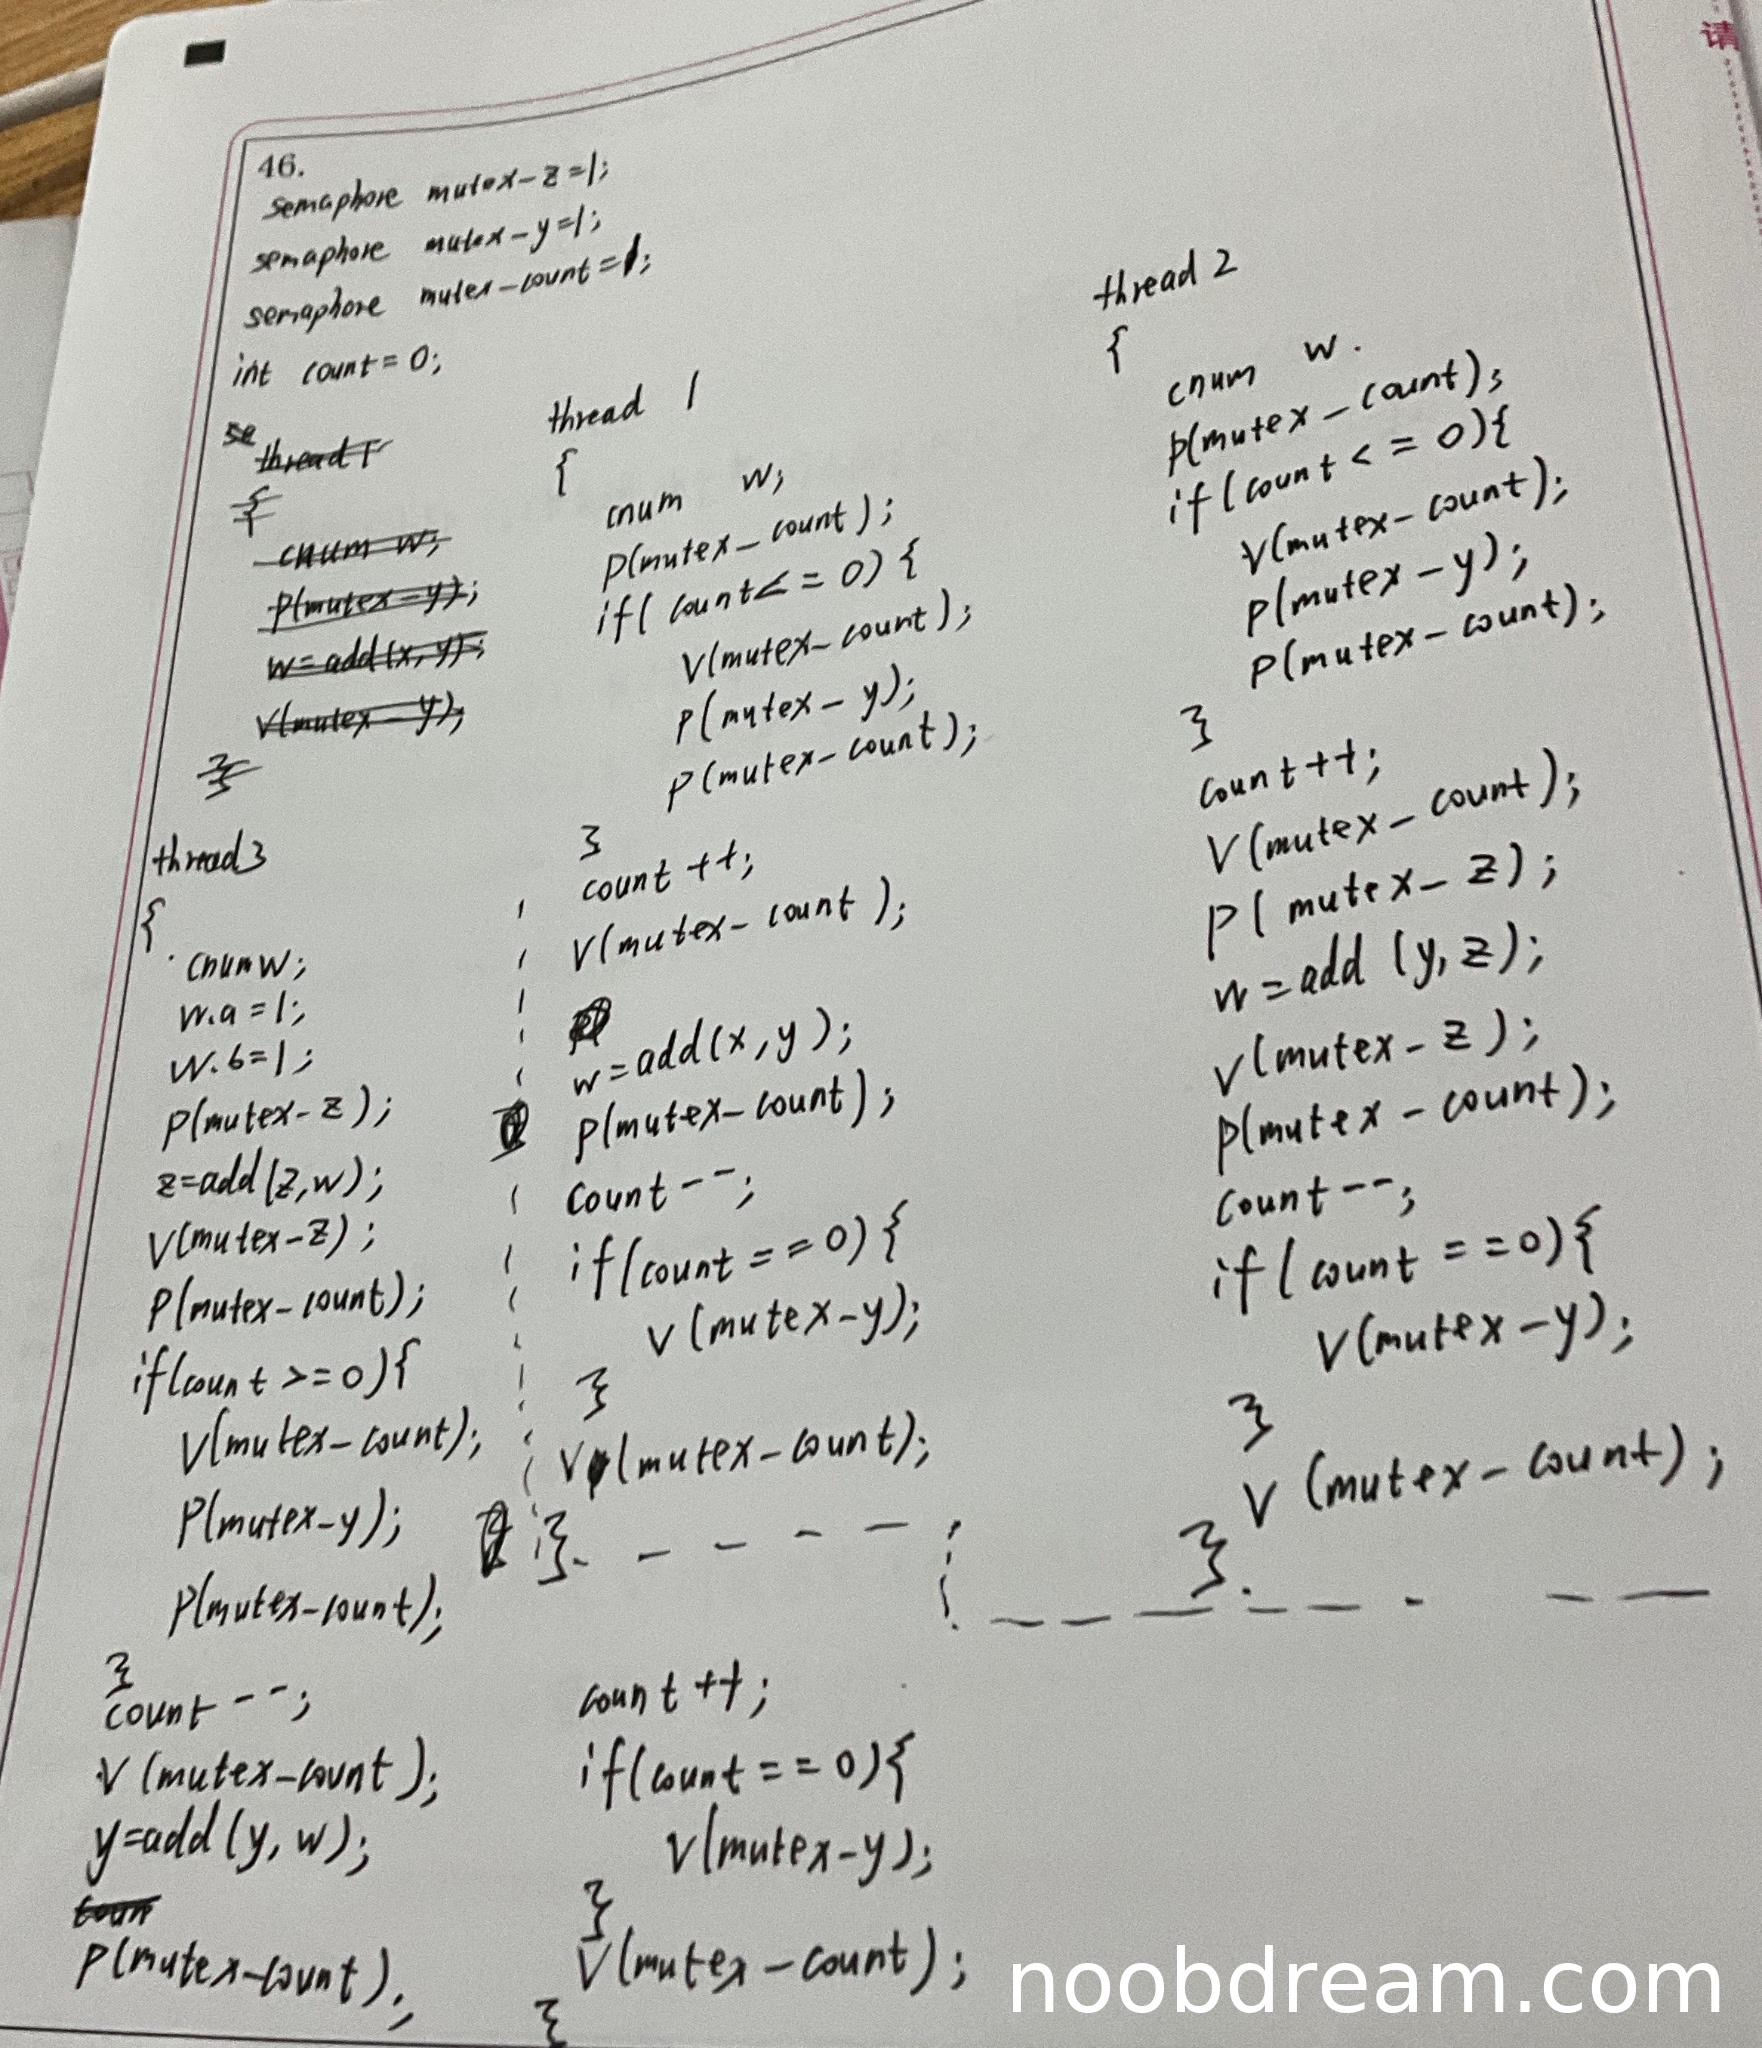 46.
semaphore mutex-z=1;
semaphore mutex-y=1;
semaphore mutex-count=1;
int count=0;
se
thread1
{
cnum w;
P(mutex-y);
w=add(x,y);
V(mutex-y);
}
thread 1
{
cnum w;
P(mutex-count);
if(count<=0){
V(mutex-count);
P(mutex-y);
P(mutex-count);
}
count++;
V(mutex-count);
w=add(x,y);
P(mutex-count);
count--;
if(count==0){
V(mutex-y);
}
V(mutex-count);
}.
thread 2
{
cnum w.
P(mutex-count);
if(count<=0){
V(mutex-count);
P(mutex-y);
P(mutex-count);
}
count++;
V(mutex-count);
P(mutex-z);
w=add(y,z);
V(mutex-z);
P(mutex-count);
count--;
if(count==0){
V(mutex-y);
}
V(mutex-count);
}.
thread3
{
cnum w;
w.a=1;
w.b=1;
P(mutex-z);
z=add(z,w);
V(mutex-z);
P(mutex-count);
if(count>=0){
V(mutex-count);
P(mutex-y);
P(mutex-count);
}
count--;
V(mutex-count);
y=add(y,w);
coun
P(mutex-count);
count++;
if(count==0){
V(mutex-y);
}
V(mutex-count);
}
请
noobdream.com